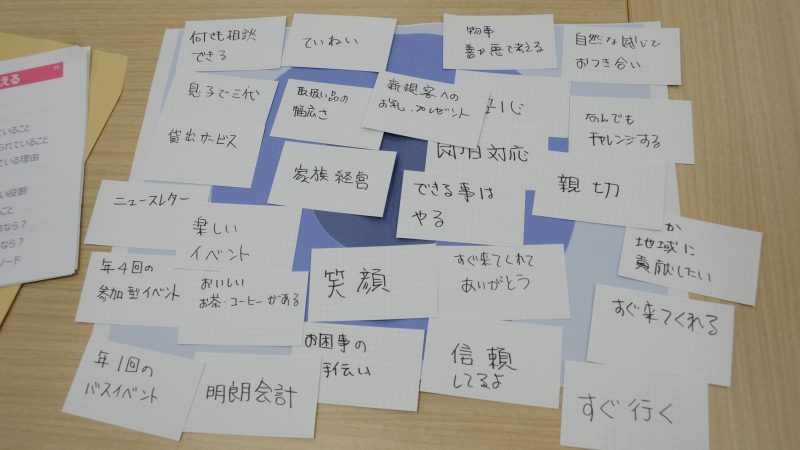 何でも相談
できる
ていねい
物事
善か悪で考える
自然な感じで
おつき合い
息子で三代
貸出サービス
取扱い品の
幅広さ
新規客への
お礼・プレゼント
なんでも
チャレンジする
即日対応
家族経営
できる事は
やる
親切
ニュースレター
楽しい
イベント
か
地域に
貢献したい
年4回の
参加型イベント
おいしい
お茶・コーヒーがある
笑顔
すぐ来てくれて
ありがとう
すぐ来てくれる
年1回の
バスイベント
明朗会計
お困事の
手伝い
信頼
してるよ
すぐ行く
える
ていること
られていること
ている理由
い役割
こと
なら？
なら？
ソード